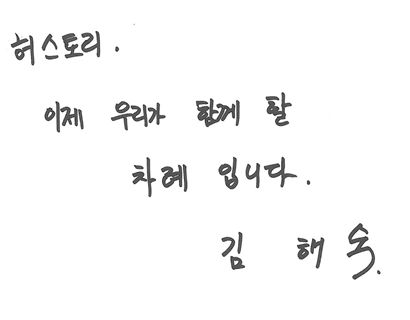 허스토리.
이제 우리가 함께 할
차례 입니다.
김 해숙.